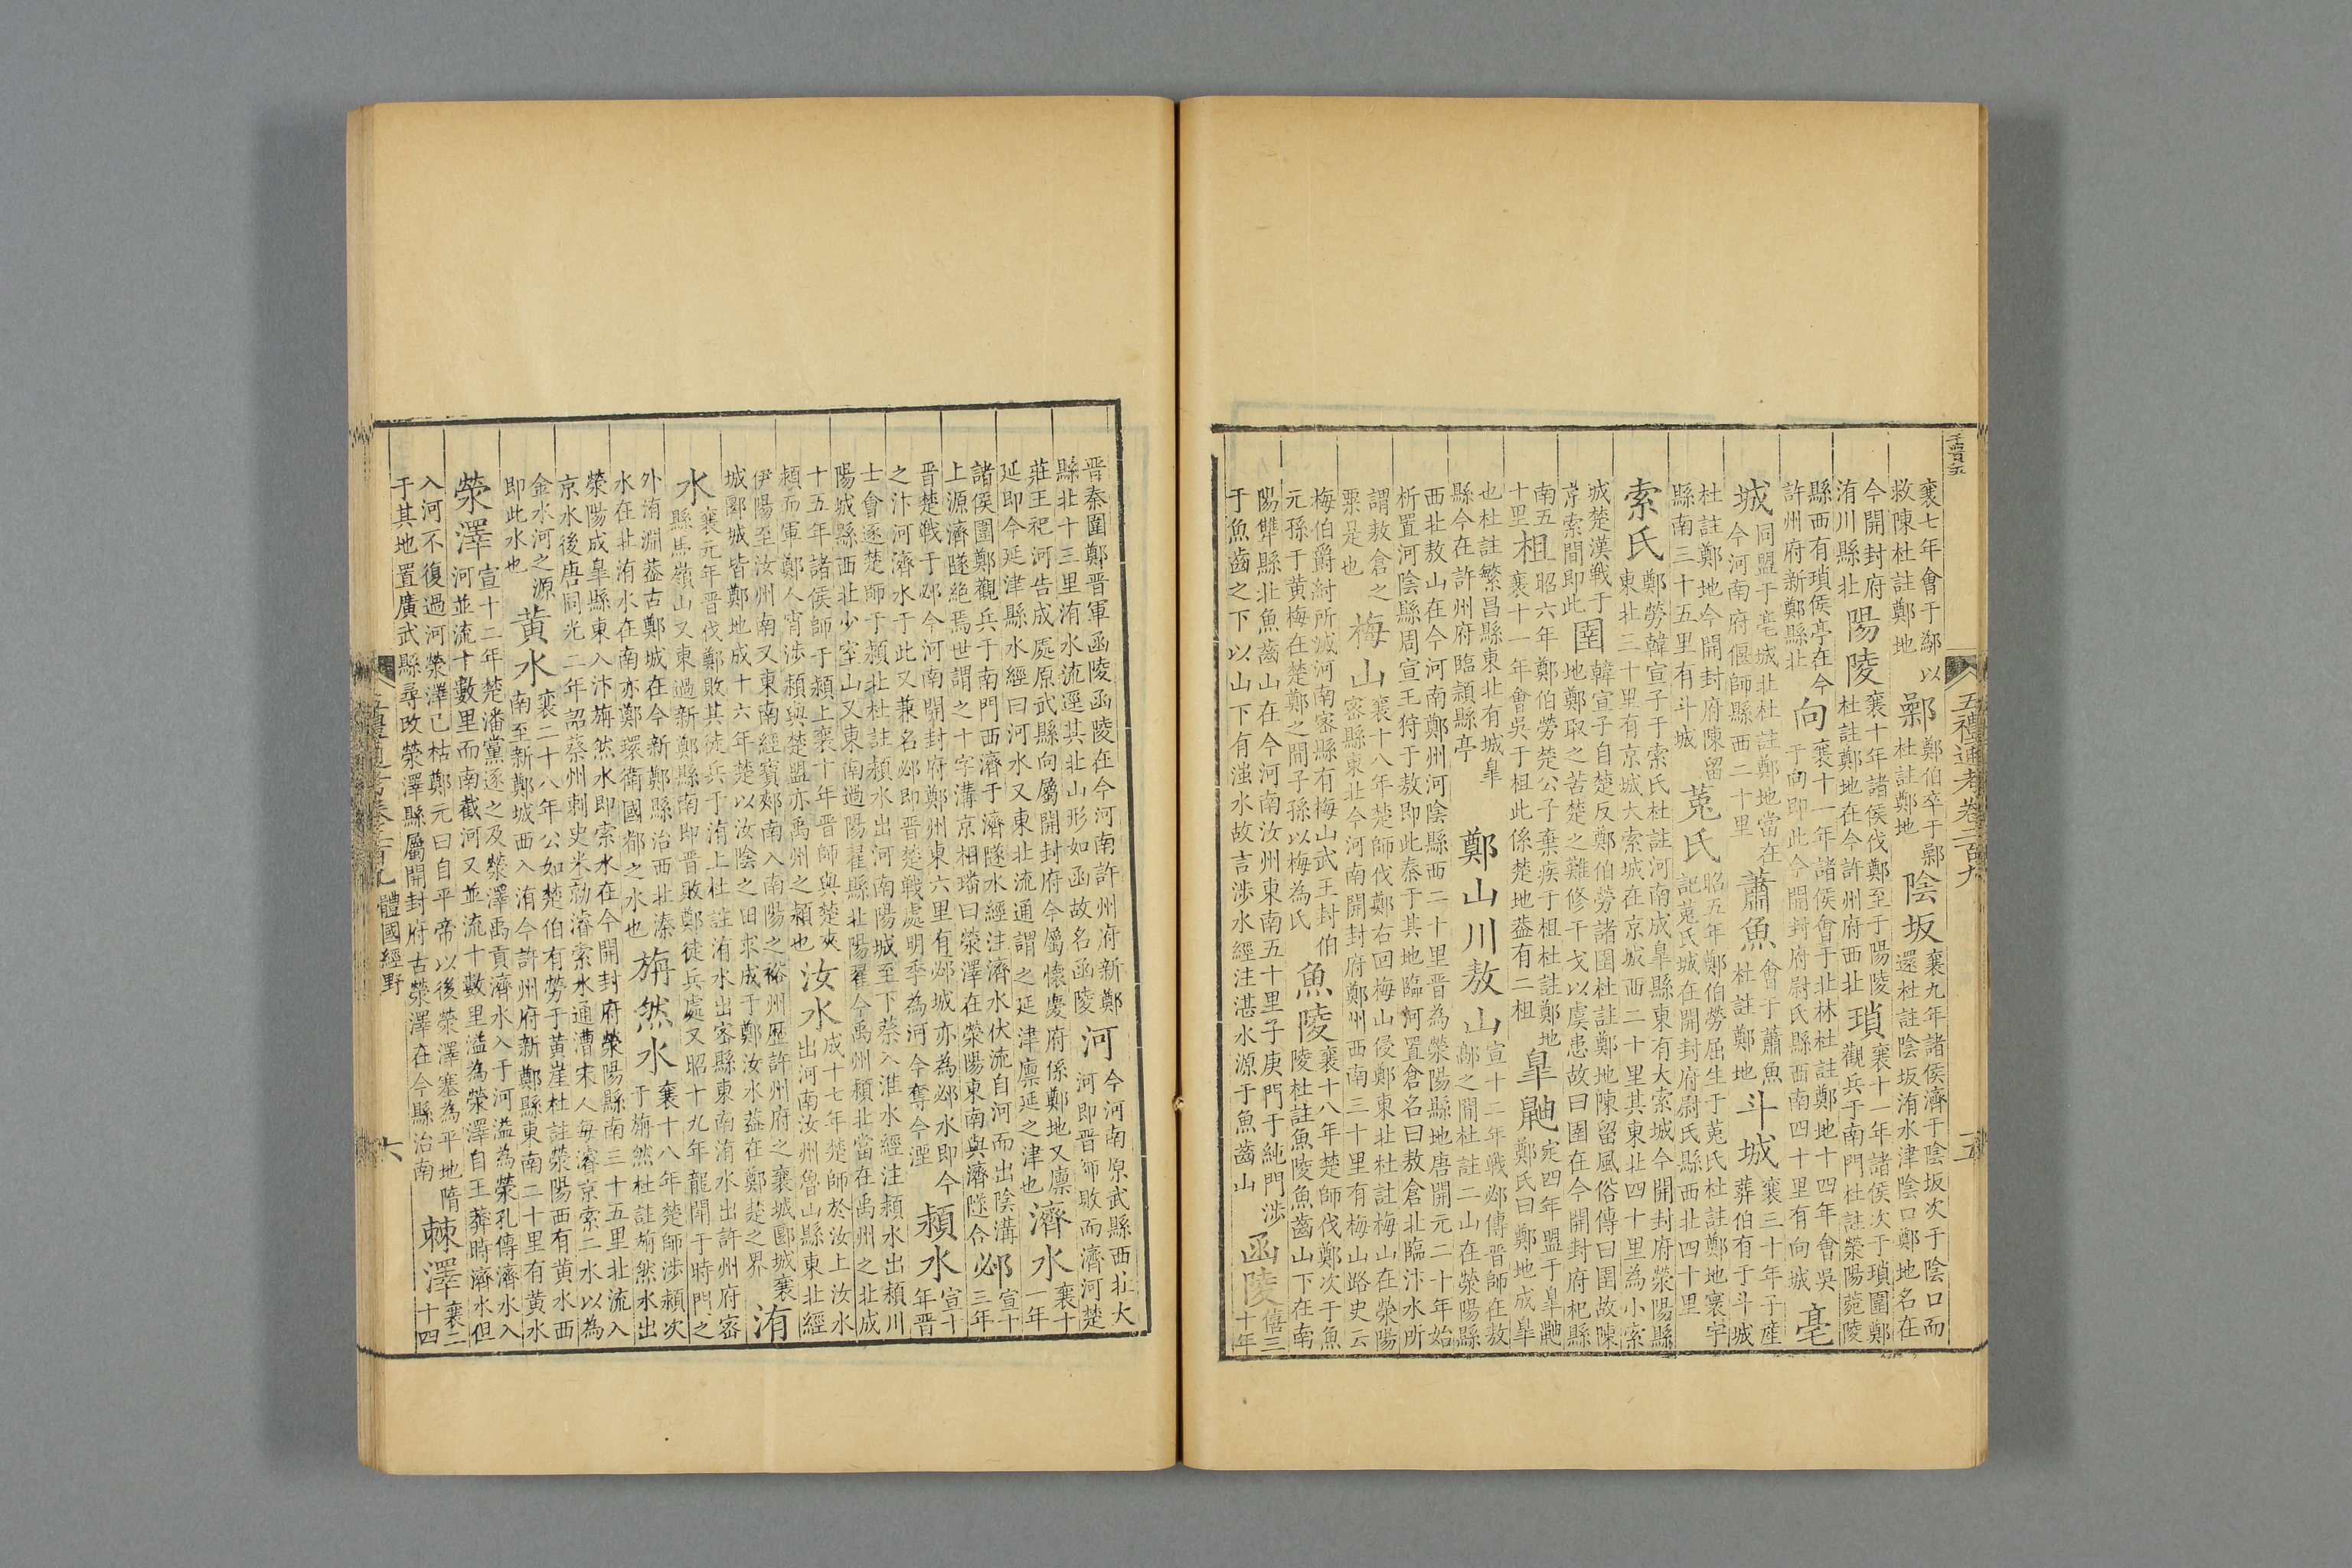 襄七年會于鄬以
救陳杜註鄭地
鄵
鄭伯卒于鄵
杜註鄭地
陰坂
襄九年諸侯濟于陰坂次于陰口而
還杜註陰坂洧水津陰口鄭地名在
今開封府
洧川縣北
陽陵
襄十年諸侯伐鄭至于陽陵
杜註鄭地在今許州府西北
瑣
襄十一年諸侯次于瑣圍鄭
觀兵于南門杜註滎陽菀陵
縣西有瑣侯亭在今
許州府新鄭縣北
向
襄十一年諸侯會于北林杜註鄭地十四年會吳
于向即此今開封府尉氏縣西南四十里有向城
亳
城
同盟于亳城北杜註鄭地當在
今河南府偃師縣西二十里
蕭魚
會于蕭魚
杜註鄭地
斗城
襄三十年子產
葬伯有于斗城
杜註鄭地今開封府陳留
縣南三十五里有斗城
菟氏
昭五年鄭伯勞屈生于菟氏杜註鄭地寰宇
記菟氏城在開封府尉氏縣西北四十里
索氏
鄭勞韓宣子于索氏杜註河南成臯縣東有大索城今開封府滎陽縣
東北三十里有京城大索城在京城西二十里其東北四十里為小索
城楚漢戰于
京索間即此
圉
韓宣子自楚反鄭伯勞諸圉杜註鄭地陳留風俗傳曰圉故陳
地鄭取之苦楚之難修干戈以虞患故曰圉在今開封府杞縣
南五
十里
柤
昭六年鄭伯勞楚公子棄疾于柤杜註鄭地
襄十一年會吳于柤此係楚地葢有二柤
臯鼬
定四年盟于臯鼬
鄭氏曰鄭地成臯
也杜註繁昌縣東北有城臯
縣今在許州府臨潁縣亭
鄭山川敖山
宣十二年戰邲傳晉師在敖
鄗之間杜註二山在滎陽縣
西北敖山在今河南鄭州河陰縣西二十里晉為滎陽縣地唐開元二十年始
析置河陰縣周宣王狩于敖即此秦于其地臨河置倉名曰敖倉北臨汴水所
謂敖倉之
粟是也
梅山
襄十八年楚師伐鄭右回梅山侵鄭東北杜註梅山在滎陽
密縣東北今河南開封府鄭州西南三十里有梅山路史云
梅伯爵紂所滅河南密縣有梅山武王封伯
元孫于黃梅在楚鄭之間子孫以梅為氏
魚陵
襄十八年楚師伐鄭次于魚
陵杜註魚陵魚齒山下在南
陽犨縣北魚齒山在今河南汝州東南五十里子庚門于純門涉
于魚齒之下以山下有滍水故言涉水經注湛水源于魚齒山
函陵
僖三
十年
五禮通考卷二百九
五
晉秦圍鄭晉軍函陵函陵在今河南許州府新鄭
縣北十三里洧水流逕其北山形如函故名函陵
河
今河南原武縣西北大
河即晉師敗而濟河楚
莊王祀河告成處原武縣向屬開封府今屬懷慶府係鄭地又廪
延即今延津縣水經曰河水又東北流通謂之延津廪延之津也
濟水
襄十
一年
諸侯圍鄭觀兵于南門西濟于濟隧水經注濟水伏流自河而出陰溝
上源濟隧絶焉世謂之十字溝京相璠曰滎澤在滎陽東南與濟隧今
邲
宣十
三年
晉楚戰于邲今河南開封府鄭州東六里有邲城亦為邲水即今
之汴河濟水于此又兼名邲即晉楚戰處明季為河今奪今湮
潁水
宣十
年晉
士會逐楚師于潁北杜註潁水出河南陽城至下蔡入淮水經注潁水出潁川
陽城縣西北少室山又東南過陽翟縣北陽翟今禹州潁北當在禹州之北成
十五年諸侯師于潁上襄十年晉師與楚夾
潁而軍鄭人宵涉潁與楚盟亦禹州之潁也
汝水
成十七年楚師於汝上汝水
出河南汝州魯山縣東北經
伊陽至汝州南又東南經寳郟南入南陽之裕州歷許州府之襄城郾城襄
城郾城皆鄭地成十六年楚以汝陰之田求成于鄭汝水葢在鄭楚之界
洧
水
襄元年晉伐鄭敗其徒兵于洧上杜註洧水出密縣東南洧水出許州府密
縣馬嶺山又東過新鄭縣南即晉敗鄭徒兵處又昭十九年龍鬭于時門之
外洧淵葢古鄭城在今新鄭縣治西北溱
水在北洧水在南亦鄭環衛國都之水也
旃然水
襄十八年楚師涉潁次
于旃然杜註旃然水出
滎陽成臯縣東入汴旃然水即索水在今開封府滎陽縣南三十五里北流入
京水後唐同光二年詔蔡州刺史米勍濬索水通漕宋人每濬京索二水以為
金水河之源
即此水也
黃水
襄二十八年公如楚伯有勞于黃崖杜註滎陽西有黃水西
南至新鄭城西入洧今許州府新鄭縣東南二十里有黃水
滎澤
宣十二年楚潘黨逐之及滎澤禹貢濟水入于河溢為滎孔傳濟水入
河並流十數里而南截河又並流十數里溢為滎澤自王莽時濟水但
入河不復過河滎澤已枯鄭元曰自平帝以後滎澤塞為平地隋
于其地置廣武縣尋改滎澤縣屬開封府古滎澤在今縣治南
棘澤
襄二
十四
體國經野
六